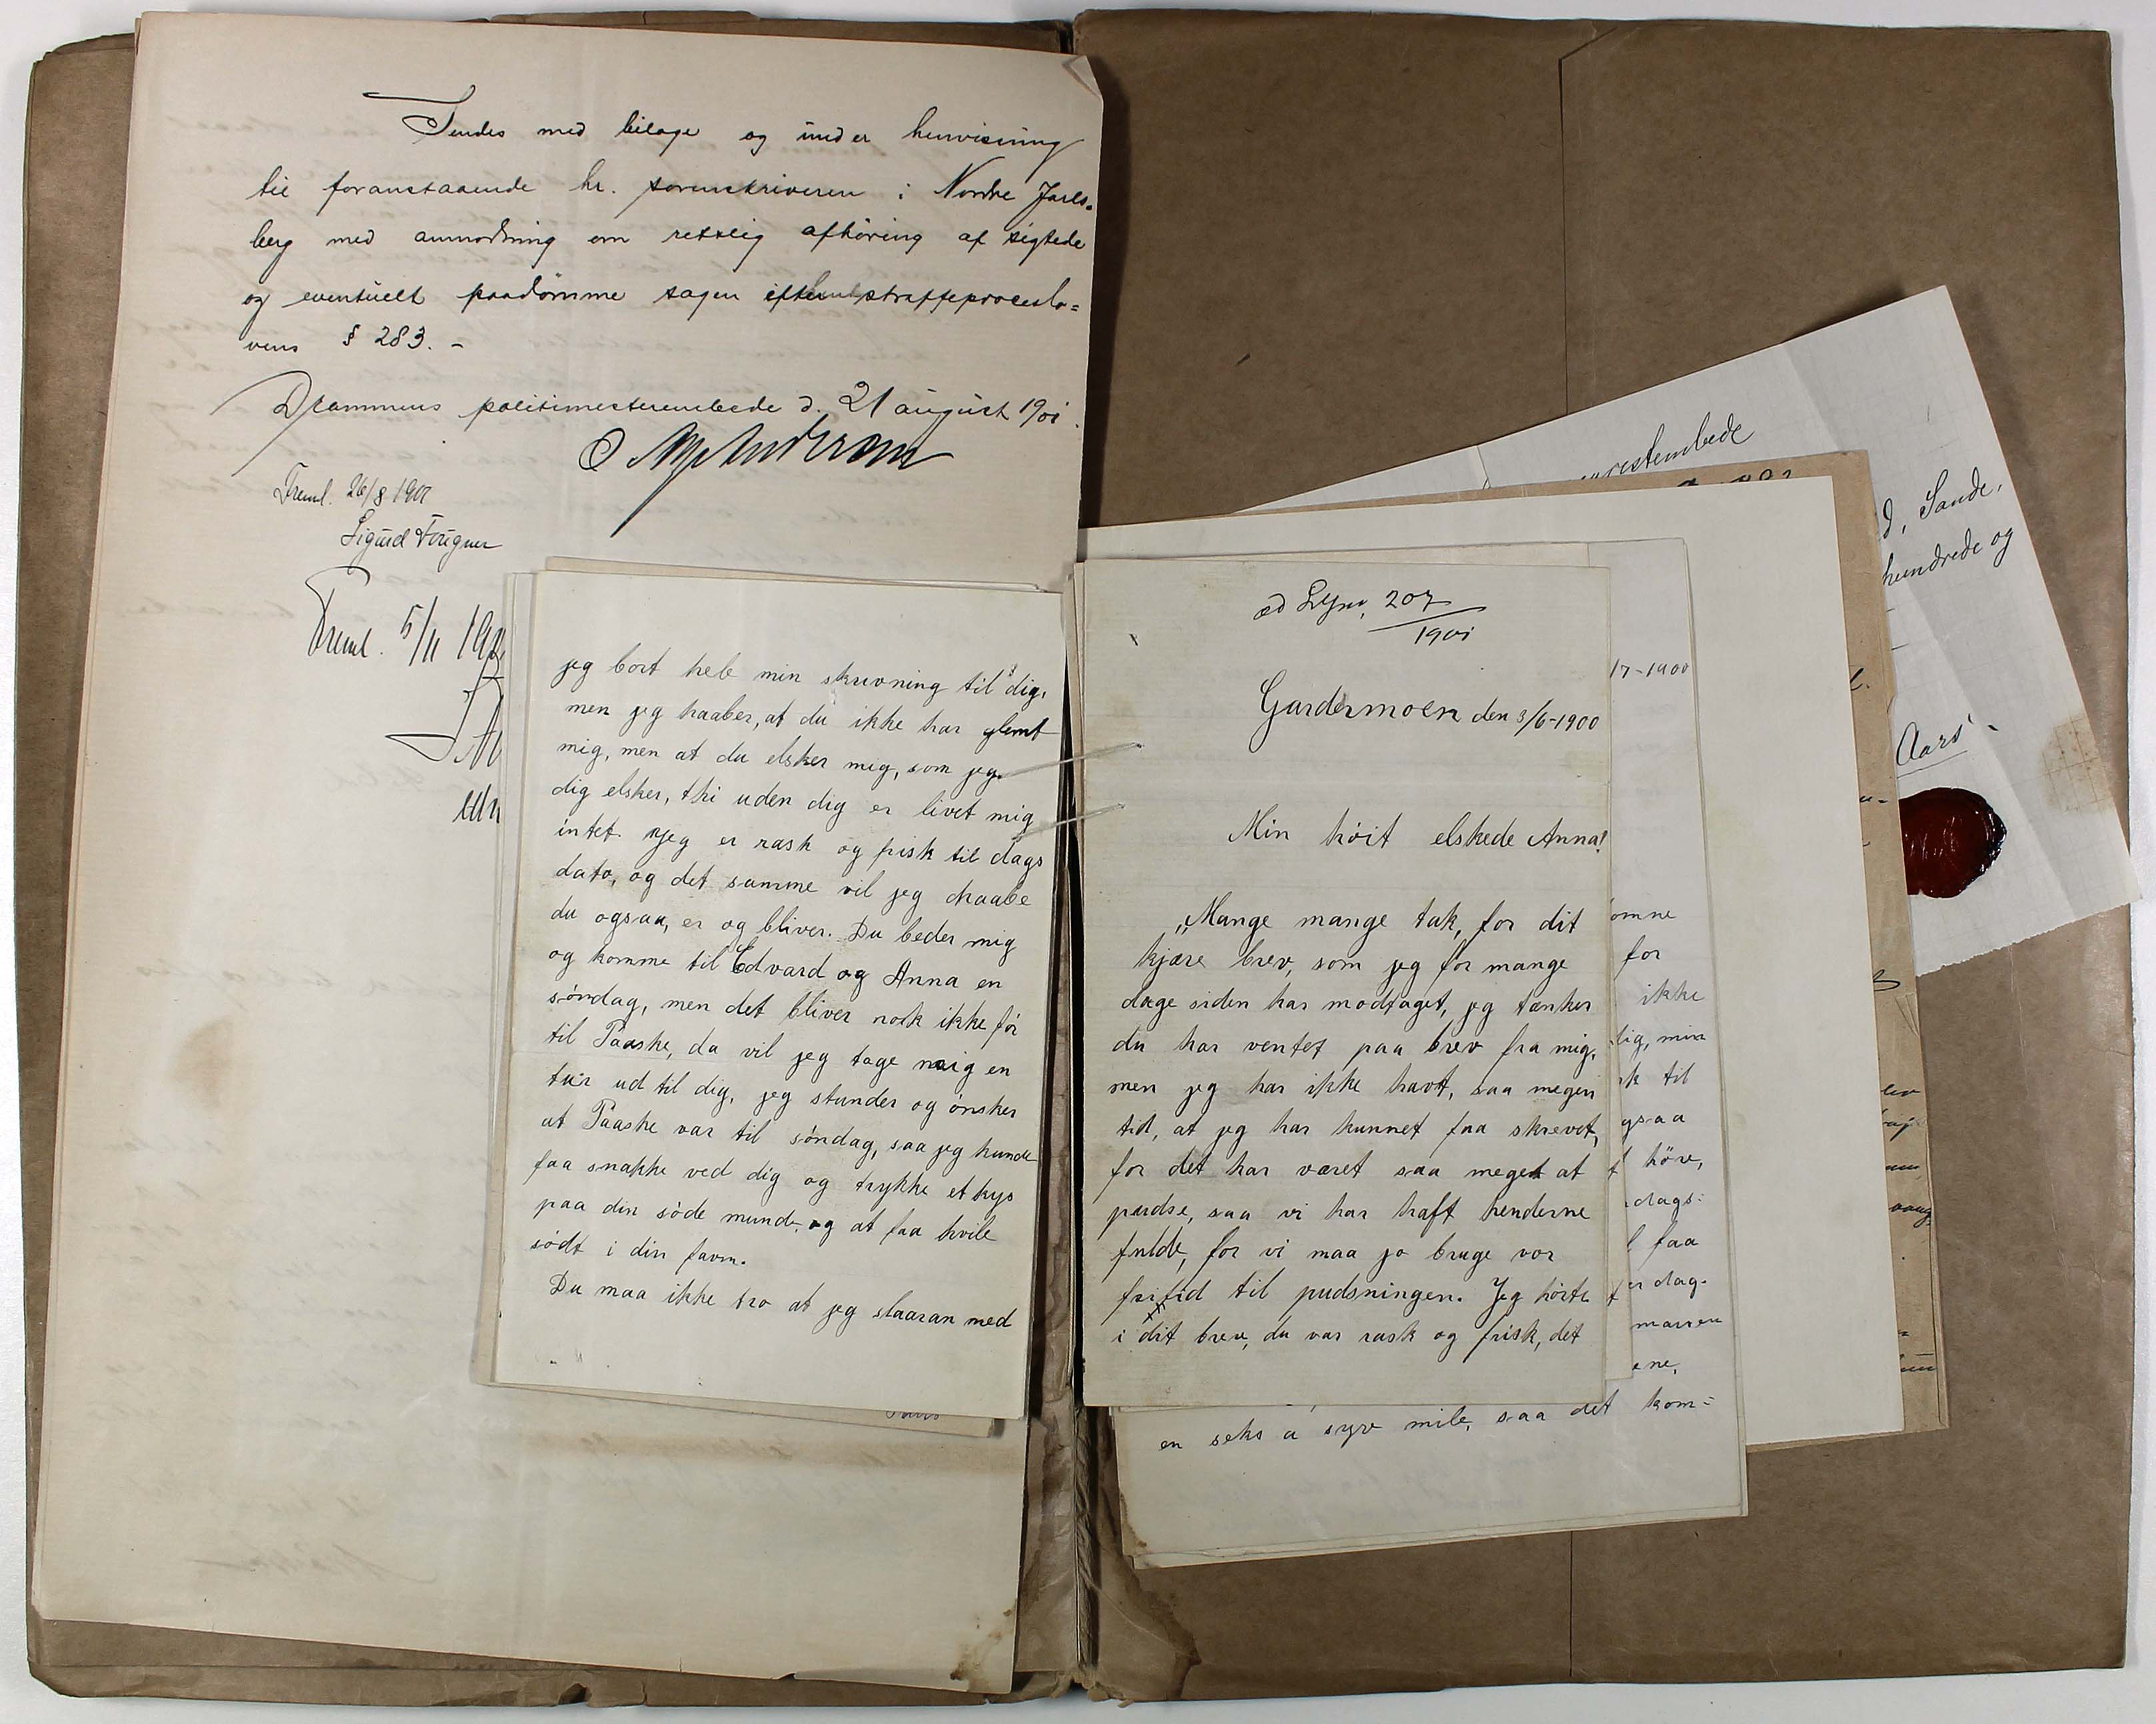 Sendes med bilage og under henvisning
til foranstaaende hr. sorenskriveren i Nordre Jarls=
berg med anmodning om retslig afhöring af sigtede
og eventuelt paadömme sagen straffeproceslo=
vens § 283. -
Drammens politimesterembede d. 21 august 1901.
Freml. 26/8 1901
Sigurd Fougner
Freml. 5/11
jeg bort hele min skrivning til dig,
men jeg haaber, at du ikke har glemt
mig, men at du elsker mig, som jeg
dig elsker, thi uden dig er livet mig
intet. Jeg er rask og frisk til dags
dato, og det samme vil jeg haabe
du ogsaa, er og bliver. Du beder mig
og komme til Edvard og Anna en
söndag, men det bliver nok ikke för
til Paaske, da vil jeg tage mig en
tur ud til dig, jeg stunder og önsker
at Paaske var til söndag, saa jeg kunde
faa snakke ved dig og trykke et kys
paa din söde mund, og at faa hvile
södt i din favn.
Du maa ikke tro at jeg slaaran med
207
1901
Gardermoen den 3/6-1900
Min höit elskede Anna!
„Mange mange tak, for dit
kjære brev, som jeg for mange
dage siden har modtaget, jeg tænker
du har ventet paa brev fra mig,
men jeg har ikke havt, saa megen
tid, at jeg har kunnet faa skrevet,
for det har været saa meget at
pudse, saa vi har haft henderne
fulde, for vi maa jo bruge vor
fritid til pudsningen. Jeg hörte
i dit brev, du var rask og frisk, det
17-1900
omne
for
ikke
lig, min
k til
gsaa
höre,
dags=
faa
er dag.
ene,
en seks á syv mile, saa det kom=
d, Sande,
hundrede og
Aars